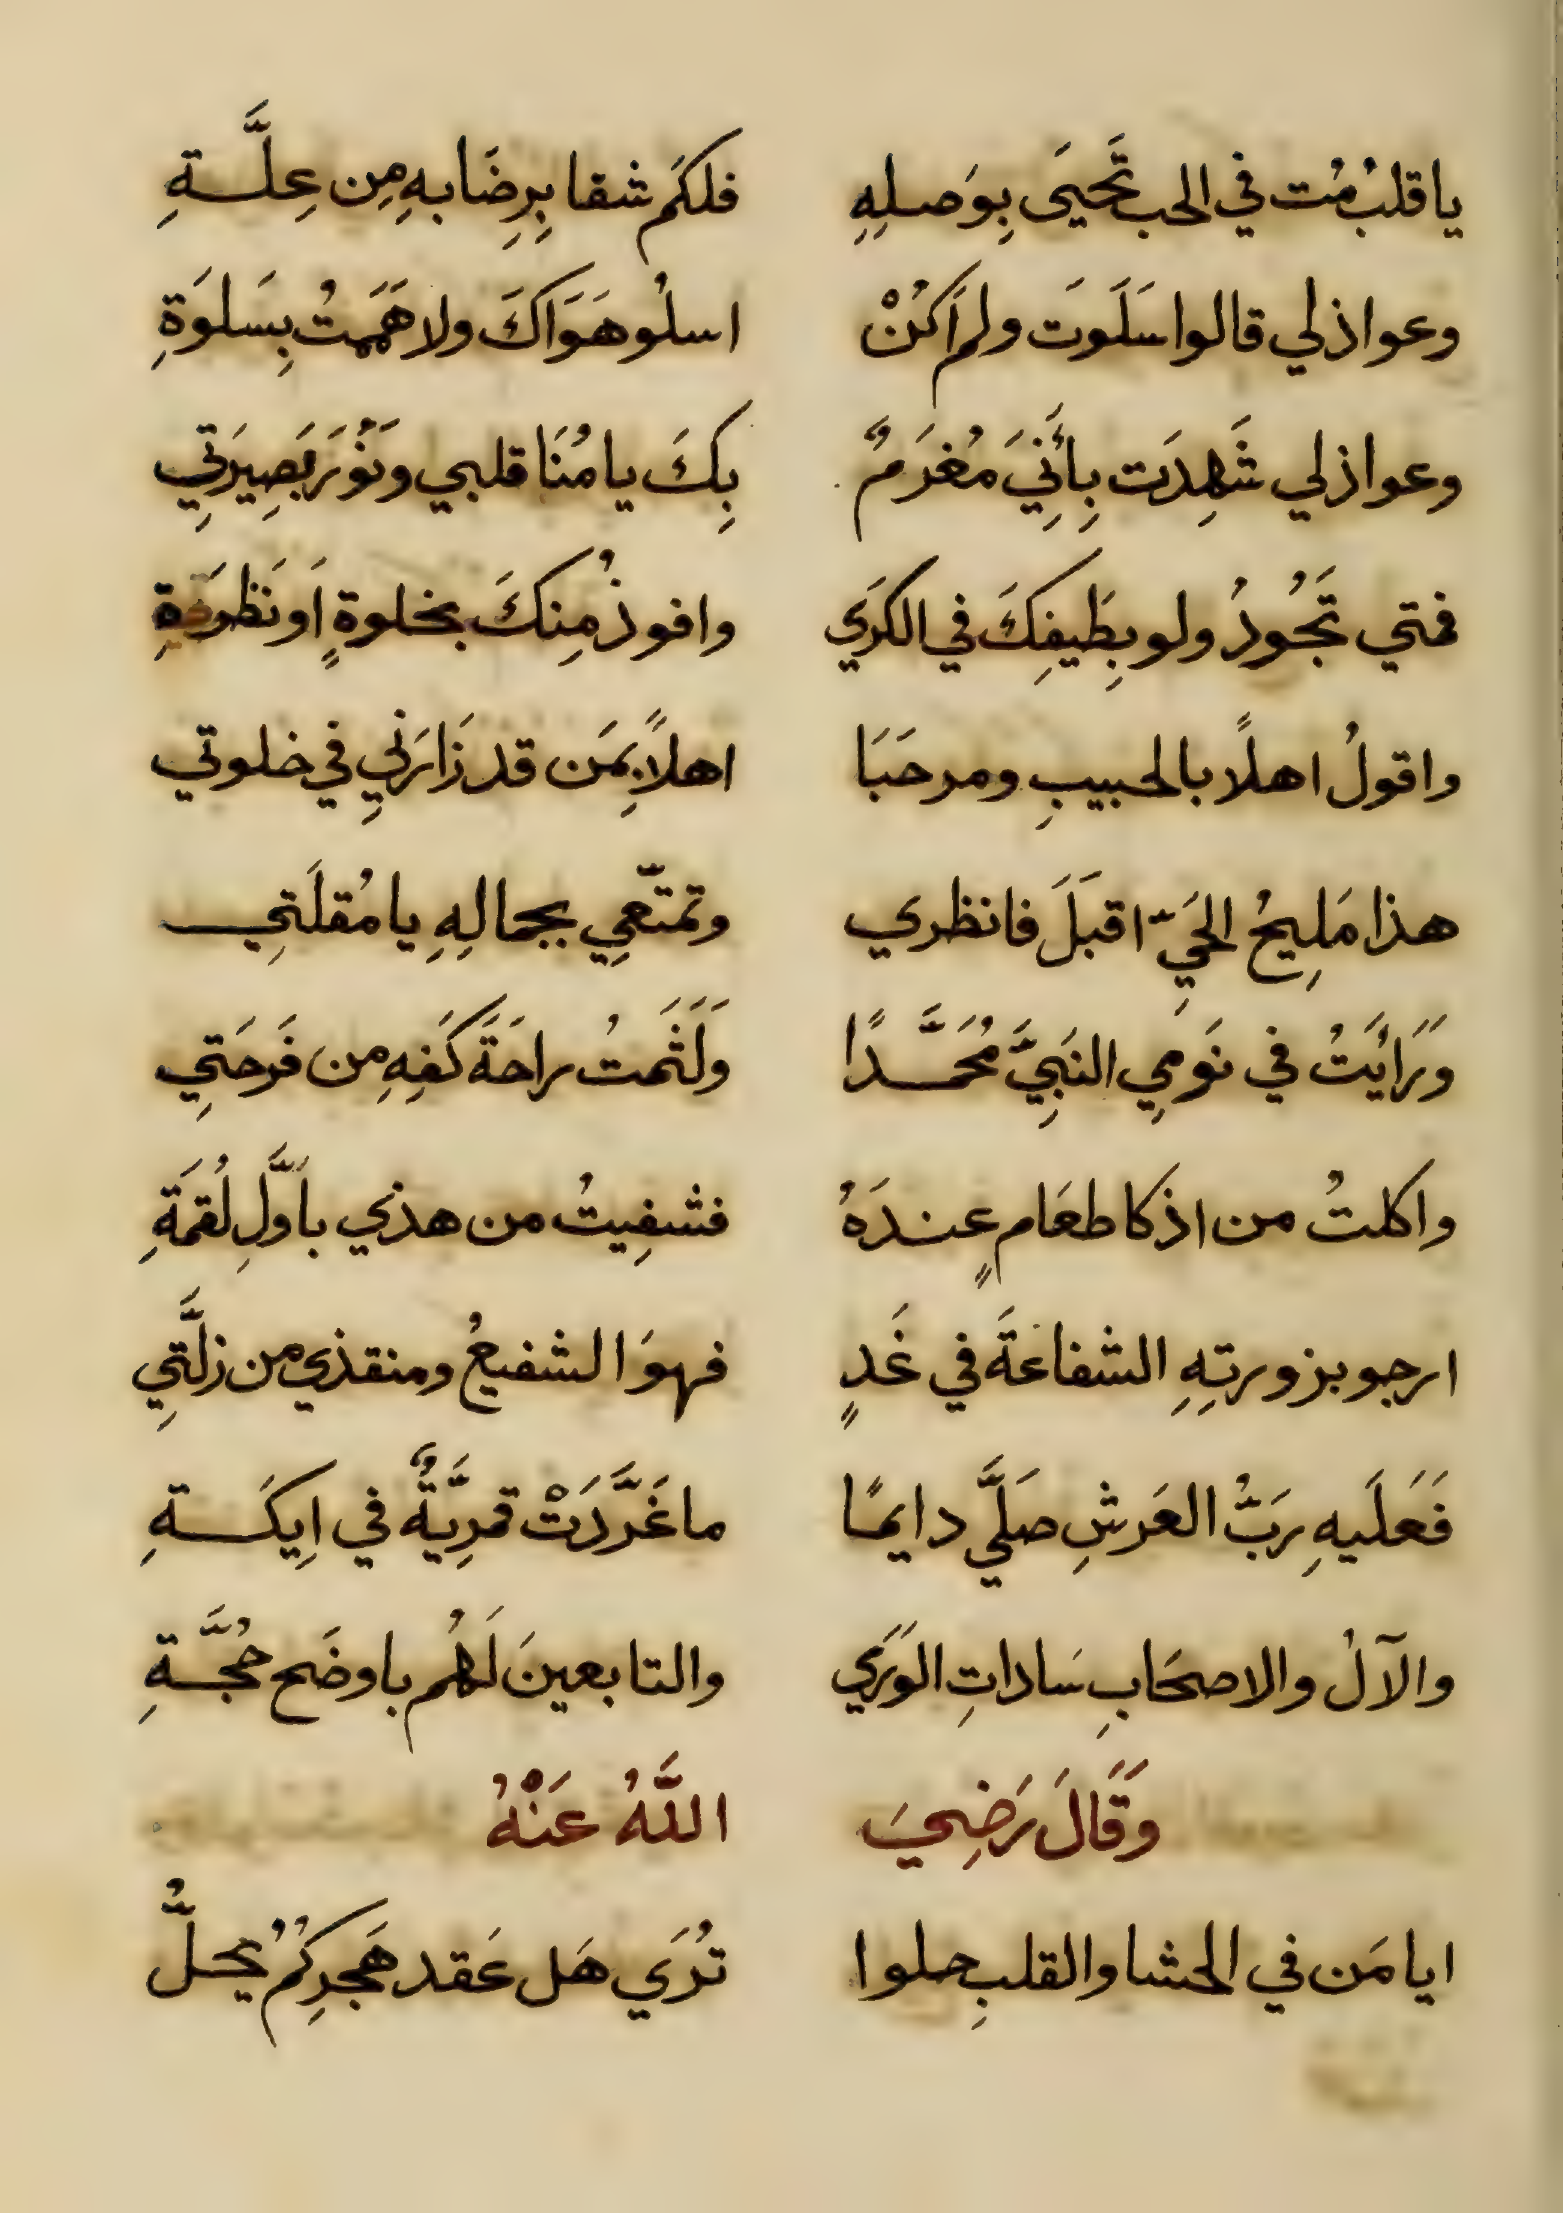 ياقلبُ مُت في الحب تَحيَى بِوَصلِهِ فلكَم شفا بِرِضَابهِ مِن عِلَّةِ
وعواذلي قالوا سَلَوَت ولم اَكُنْ اسلُو هَوَاكَ ولا هَمَمتُ بِسَلوَةِ
وعواذلي شَهِدَت بِاَنِّيَ مُغرَمٌ بِكَ يا مُنَا قلبي وَنُورَ بَصِيرَتِي
فمتي تَجُودُ ولو بِطَيفِكَ في الكرَي وافوذُ مِنكَ بخلوةٍ اَو نَظرَةِ
واقولُ اهلًا بالحبيبِ ومرحَبَا اهلاً بِمَن قد زَارَنِي في خلوتي
هذا مَلِيحُ الحَيِّ اقبَلَ فانظري وتمتّعِي بجمالِهِ يا مُقلَتِي
وَرَايَتُ في نَومِي النَبِيَّ مُحَمَّدًا وَلَثَمتُ راحَةَ كَفِهِ مِن فَرحَتِي
واكلتُ من اذكا طعَامٍ عِندَهُ فشفِيتُ من هذي باَوَّلِ لُقمَةِ
ارجو بزورتِهِ الشفاعَةَ في غَدٍ فهوَ الشفيعُ ومنقذي من زلَّتِي
فَعَلَيهِ رَبُّ العَرشِ صلَّي دايمًا ما غَرَّدَتْ قمرِيَّةٌ في اِيكَةِ
والآلُ والاصحَابِ سَاداتِ الوَرَي والتابعينَ لَهُم باوضَح حُجَّةِ
وَقَالَ رَضِيَ اللَّهُ عَنْهُ
ايا مَن في الحشا والقلبِ حلوا تُرَي هَل عَقد هَجرِكُمُ يحلُّ